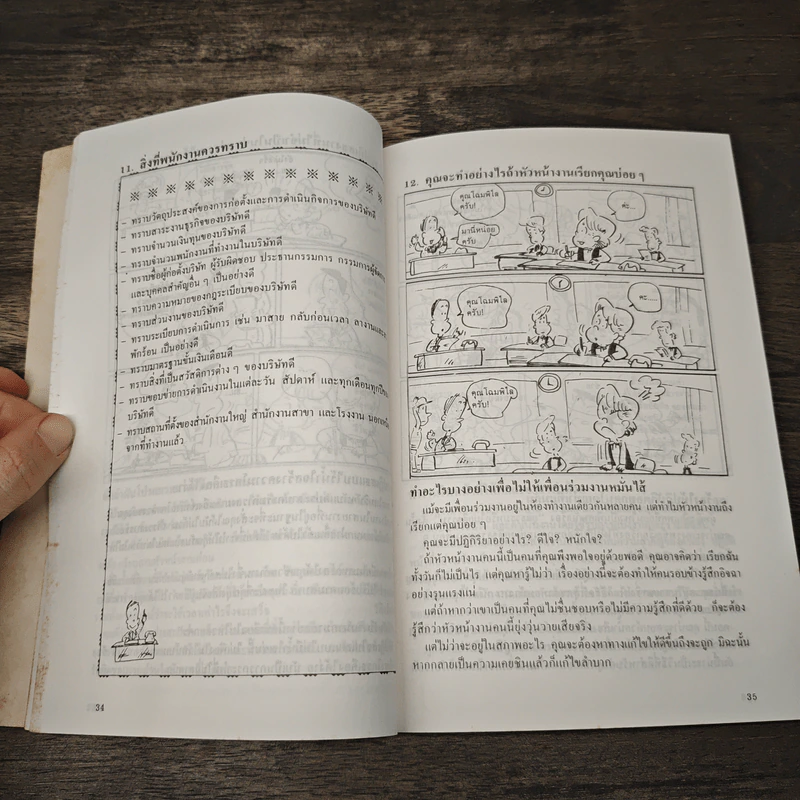 11. สิ่งที่พนักงานควรทราบ
※ ※ ※ ※ ※ ※ ※ ※ ※ ※ ※ ※
– ทราบวัตถุประสงค์ของการก่อตั้งและการดำเนินกิจการของบริษัทดี
– ทราบสาระงานธุรกิจของบริษัทดี
– ทราบจำนวนเงินทุนของบริษัทดี
– ทราบจำนวนพนักงานที่ทำงานในบริษัทดี
– ทราบชื่อผู้ก่อตั้งบริษัท ผู้รับผิดชอบ ประธานกรรมการ กรรมการผู้จัดการ
และบุคคลสำคัญอื่น ๆ เป็นอย่างดี
– ทราบความหมายของกฎระเบียบของบริษัทดี
– ทราบส่วนงานของบริษัทดี
– ทราบระเบียบการดำเนินการ เช่น มาสาย กลับก่อนเวลา ลางานและลา
พักร้อน เป็นอย่างดี
– ทราบมาตรฐานขั้นเงินเดือนดี
– ทราบสิ่งที่เป็นสวัสดิการต่าง ๆ ของบริษัทดี
– ทราบขอบข่ายการดำเนินงานในแต่ละวัน สัปดาห์ และทุกเดือนทุกปีของ
บริษัทดี
– ทราบสถานที่ตั้งของสำนักงานใหญ่ สำนักงานสาขา และโรงงาน นอกเหนือ
จากที่ทำงานแล้ว
34
12. คุณจะทำอย่างไรถ้าหัวหน้างานเรียกคุณบ่อย ๆ
คุณโฉมพิไล
ครับ!
มานี่หน่อย
ครับ!
ค่ะ...
คุณโฉมพิไล
ครับ!
ค่ะ...
คุณโฉมพิไล
ครับ!
ทำอะไรบางอย่างเพื่อไม่ให้เพื่อนร่วมงานหมั่นไส้
แม้จะมีเพื่อนร่วมงานอยู่ในห้องทำงานเดียวกันหลายคน แต่ทำไมหัวหน้างานถึง
เรียกแต่คุณบ่อย ๆ
คุณจะมีปฏิกิริยาอย่างไร? ดีใจ? หนักใจ?
ถ้าหัวหน้างานคนนี้เป็นคนที่คุณพึงพอใจอยู่ด้วยพอดี คุณอาจคิดว่า เรียกฉัน
ทั้งวันก็ไม่เป็นไร แต่คุณหารู้ไม่ว่า เรื่องอย่างนี้จะต้องทำให้คนรอบข้างรู้สึกอิจฉา
อย่างรุนแรงแน่
แต่ถ้าหากว่าเขาเป็นคนที่คุณไม่ชื่นชอบหรือไม่มีความรู้สึกที่ดีด้วย ก็จะต้อง
รู้สึกว่าหัวหน้างานคนนี้ยุ่งวุ่นวายเสียจริง
แต่ไม่ว่าจะอยู่ในสภาพอะไร คุณจะต้องหาทางแก้ไขให้ดีขึ้นถึงจะถูก มิฉะนั้น
หากกลายเป็นความเคยชินแล้วก็แก้ไขลำบาก
35